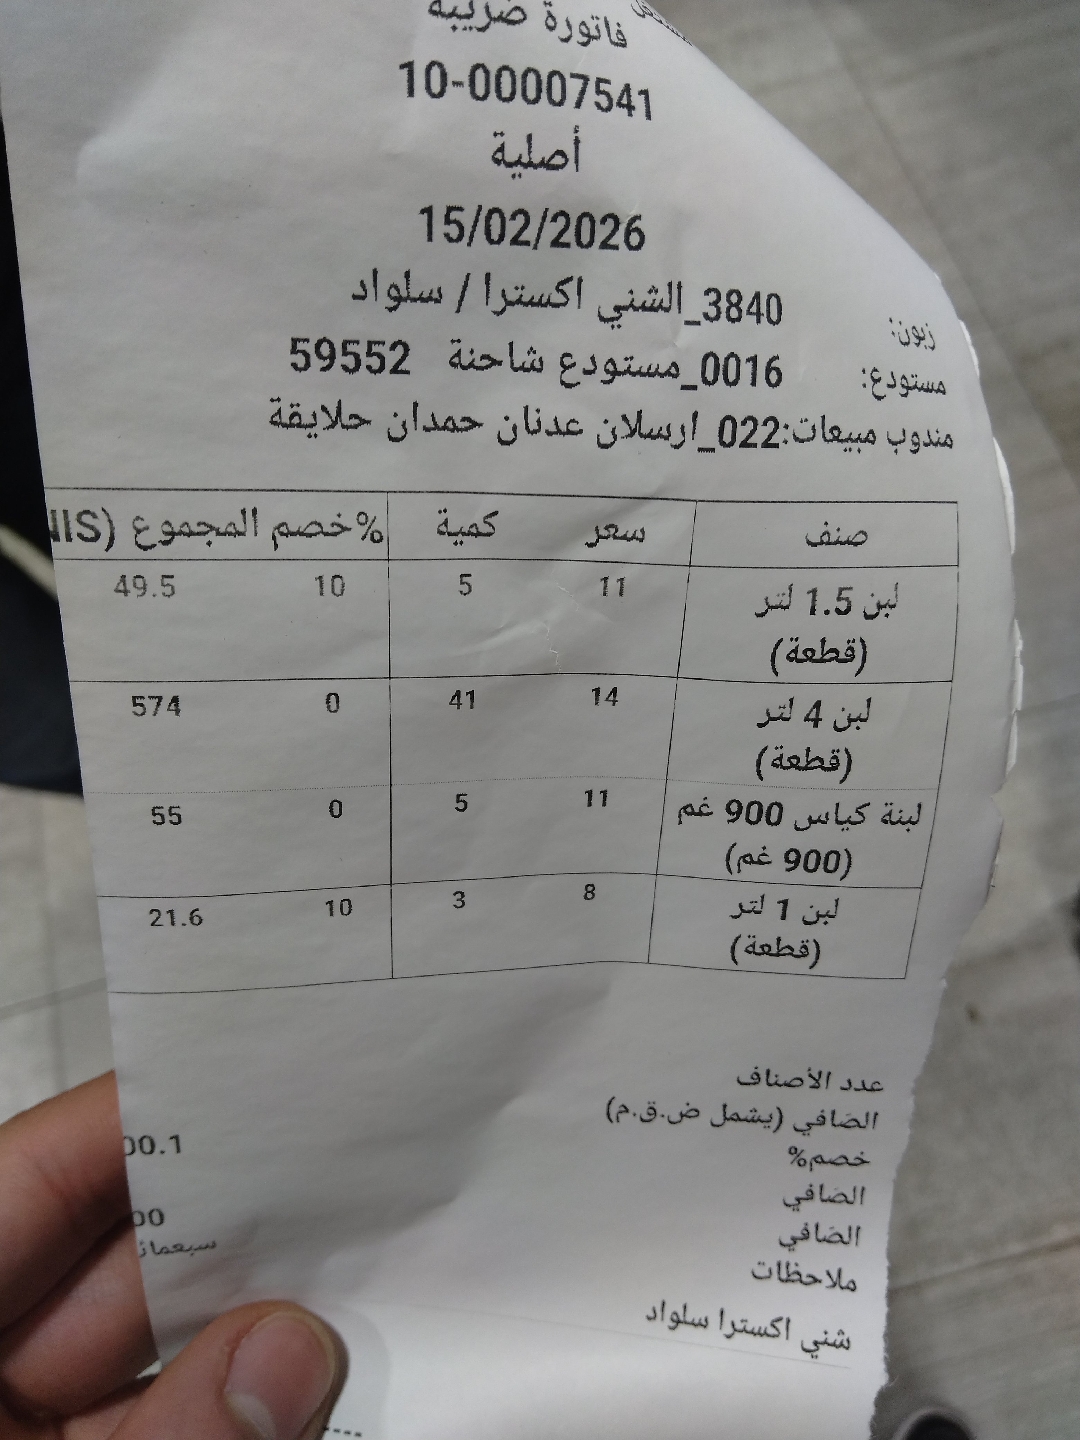 فاتورة ضريبة
10-00007541
أصلية
15/02/2026
زبون: 3840_الشني اكسترا / سلواد
مستودع: 0016_مستودع شاحنة 59552
مندوب مبيعات:022_ارسلان عدنان حمدان حلايقة
صنف سعر كمية خصم% المجموع
لبن 1.5 لتر (قطعة) 11 5 10 49.5
لبن 4 لتر (قطعة) 14 41 0 574
لبنة كياس 900 غم (900 غم) 11 5 0 55
لبن 1 لتر (قطعة) 8 3 10 21.6
عدد الأصناف
الصافي (يشمل ض.ق.م) 00.1
خصم%
الصافي
الصافي 00
ملاحظات
شني اكسترا سلواد